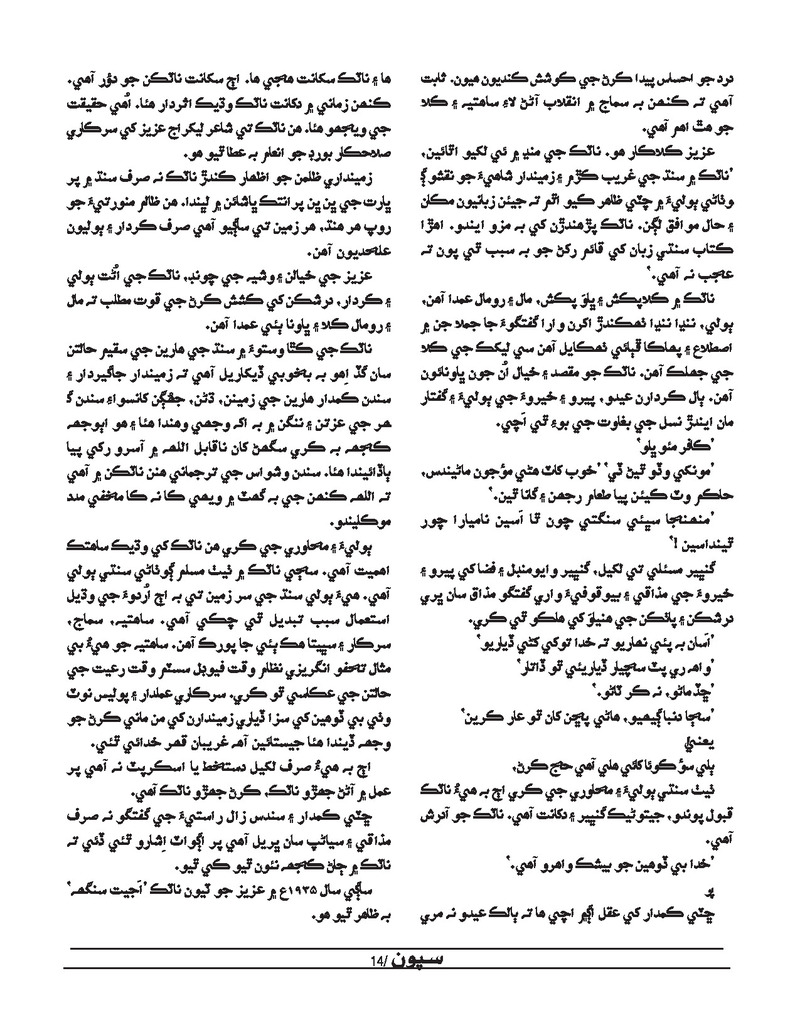 درد جو احساس پيدا ڪرڻ جي ڪوشش ڪنديون هيون. ثابت
آهي ته ڪنهن به سماج ۾ انقلاب آڻڻ لاءِ ساهتيه ۽ ڪلا
جو هٿ اهم آهي.
عزيز ڪلاڪار هو. ناٽڪ جي منڍ ۾ ئي لکيو اٿائين،
'ناٽڪ ۾ سنڌ جي غريب ڪڙم ۽ زميندار شاهيءَ جو نقشو ڳ
وٺاڻي ٻوليءَ ۾ چٽي ظاهر ڪيو اٿم ته جيئن زبانيون مڪان
۽ حال موافق لڳن. ناٽڪ پڙهندڙن کي به مزو ايندو. اهڙا
ڪتاب سنڌي زبان کي قائم رکڻ جو به سبب ٿي پون ته
عجب نه آهي.'
ناٽڪ ۾ ڪلاپکش ۽ ڀاوَ پکش، مال ۽ رومال عمدا آهن،
ٻولي، ننڍا ننڍا ٺهڪندڙ اکرن وارا گفتگوءَ جا جملا جن ۾
اصطلاع ۽ پهاڪا ڦٻائي ٺهڪايل آهن سي ليکڪ جي ڪلا
جي جھلڪ آهن. ناٽڪ جو مقصد ۽ خيال اُن جون ڀاونائون
آهن. ٻال ڪردارن عيدو، پيرو ۽ خيروءَ جي ٻوليءَ ۽ گفتار
مان ايندڙ نسل جي بغاوت جي بوءِ ٿي اَچي.
'ڪافر مئو ڀلو'
'مونکي وڏو ٿيڻ ڏي' 'خوب کاٽ هڻي مؤجون ماڻيندس،
حاڪم وٽ ڪيئن پيا طعام رجهن ۽ گانا ٿين.'
'منهنجا سڀئي سنگتي چون ٿا اَسين ناميارا چور
ٿينداسين !'
گنڀير مسئلي تي لکيل، گنڀير وايومنڊل ۽ فضا کي پيرو ۽
خيروءَ جي مذاقي ۽ بيوقوفيءَ واري گفتگو مذاق سان ڀري
درشڪن ۽ پاٺڪن جي هنيلوَ کي هلڪو ٿي ڪري.
'اَسان به پئي نهاريو ته خدا توکي کڻي ڏياريو'
'واهه ري پٽ سڄيار ڏياريئي ٿو ڏاتار'
'ڇڏ ماٺو، نه ڪر ٽاڻو.'
'سڄا دنبا ڳيهيو، هاڻي پڇڻ کان ٿو عار ڪرين'
يعنيٰ
ٻلي سؤ ڪوئا کائي هلي آهي حج ڪرڻ،
ٺيٺ سنڌي ٻوليءَ ۽ محاوري جي ڪري اڄ به هيءُ ناٽڪ
قبول پوندو، جيتوڻيڪ گنڀير ۽ دکانت آهي. ناٽڪ جو آدرش
آهي.
'خدا بي ڏوهين جو بيشڪ واهرو آهي.'
پر
چٽي ڪمدار کي عقل اڳ ۾ اچي ها ته ٻالڪ عيدو نه مري
ها ۽ ناٽڪ سکانت هجي ها. اڄ سکانت ناٽڪن جو دؤر آهي.
ڪنهن زماني ۾ دکانت ناٽڪ وڌيڪ اثردار هئا. اُهي حقيقت
جي ويجهو هئا. هن ناٽڪ تي شاعر ليکراج عزيز کي سرڪاري
صلاحڪار بورڊ جو انعام به عطا ٿيو هو.
زمينداري ظلمن جو اظهار ڪندڙ ناٽڪ نه صرف سنڌ ۾ پر
ڀارت جي ڀن ڀن پرانتڪ ڀاشائن ۾ لڀندا. هن ظالم منورتيءَ جو
روپ هر هنڌ، هر زمين تي ساڳيو آهي صرف ڪردار ۽ ٻوليون
علحديون آهن.
عزيز جي خيالن ۽ وشيه جي چونڊ، ناٽڪ جي اُڻت ٻولي
۽ ڪردار، درشڪن کي ڪشش ڪرڻ جي قوت مطلب ته مال
۽ رومال ڪلا ۽ ڀاونا ٻئي عمدا آهن.
ناٽڪ جي ڪٿا وستوءَ ۾ سنڌ جي هارين جي سقيم حالتن
سان گڏ اِهو به بخوبي ڏيکاريل آهي ته زميندار جاگيردار ۽
سندن ڪمدار هارين جي زمينن، ڌڻن، جڦڳن کانسواءِ سندن گ
هر جي عزتن ۽ ننگن ۾ به اک وجهي وهندا هئا ۽ هو اٻوجهه
ڪجهه به ڪري سگهڻ کان ناقابل اللهه ۾ آسرو رکي پيا
ٻاڏائيندا هئا. سندن وشواس جي ترجماني هنن ناٽڪن ۾ آهي
ته اللهه ڪنهن جي به گهٽ ۾ ويهي ڪا نه ڪا مخفي مدد
موڪليندو.
ٻوليءَ ۽ محاوري جي ڪري هن ناٽڪ کي وڌيڪ ساهتڪ
اهميت آهي. سڄي ناٽڪ ۾ ٺيٺ مسلم ڳوٺاڻي سنڌي ٻولي
آهي. هيءَ ٻولي سنڌ جي سر زمين تي به اڄ اُردوءَ جي وڌيل
استعمال سبب تبديل ٿي چڪي آهي. ساهتيه، سماج،
سرڪار ۽ سڀيتا هڪ ٻئي جا پورڪ آهن. ساهتيه جو هيءُ بي
مثال تحفو انگريزي نظام وقت فيوڊل سسٽم وقت رعيت جي
حالتن جي عڪاسي ٿو ڪري. سرڪاري عملدار ۽ پوليس نوٽ
وٺي بي ڏوهين کي سزا ڏياري زميندارن کي من ماني ڪرڻ جو
وجهه ڏيندا هئا جيستائين آهه غريبان قهر خدائي ٿئي.
اڄ به هيءُ صرف لکيل دستخط يا اسڪرپٽ نه آهي پر
عمل ۾ آڻڻ جهڙو ناٽڪ، ڪرڻ جهڙو ناٽڪ آهي.
چٽي ڪمدار ۽ سندس زال راستيءَ جي گفتگو نه صرف
مذاقي ۽ سياڻپ سان ڀريل آهي پر اڳواٽ اِشارو ٿئي ڏئي ته
ناٽڪ ۾ ڄاڻ ڪجهه نئون ٿيو ڪي ٿيو.
ساڳي سال ۱۹۳۵ع ۾ عزيز جو ٽيون ناٽڪ 'اَجيت سنگهه'
به ظاهر ٿيو هو.
سپون /14